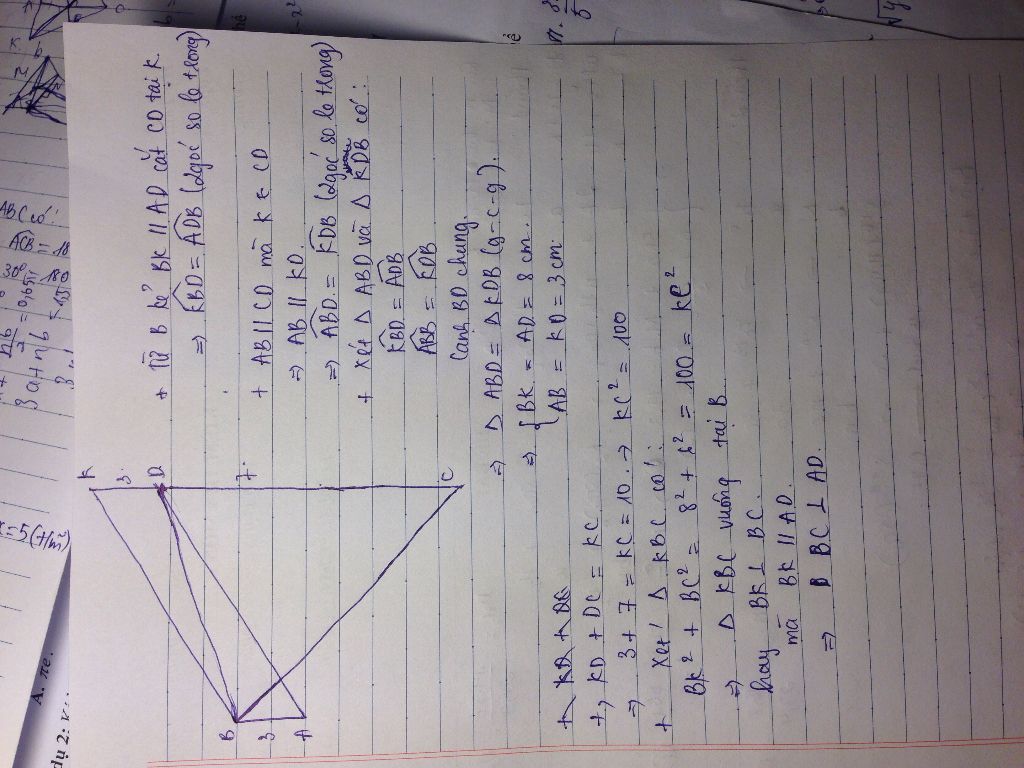 K
3
D
7
C
B
3
A
+ Từ B kẻ BK // AD cắt CD tại K.
⇒ \widehat{KBD} = \widehat{ADB} (2góc so le trong)
+ AB // CD mà K ∈ CD
⇒ AB // KD.
⇒ \widehat{ABD} = \widehat{KDB} (2góc so le trong)
+ Xét Δ ABD và Δ KDB có:
\widehat{KBD} = \widehat{ADB}
\widehat{ABB} = \widehat{KDB}
Cạnh BD chung.
⇒ Δ ABD = Δ KDB (g-c-g).
⇒ { BK = AD = 8 cm.
AB = KD = 3 cm
+, KD + DC = KC
⇒ 3 + 7 = KC = 10. → KC² = 100
+ Xét Δ KBC có:
BK² + BC² = 8² + 6² = 100 = KC²
⇒ Δ KBC vuông tại B.
hay BK ⊥ BC.
mà BK // AD.
⇒ BC ⊥ AD.
ABC có:
\widehat{ACB} = 18
30°
180
3a+nb
x = 5 (t/m)
A. πe.
dụ 2: